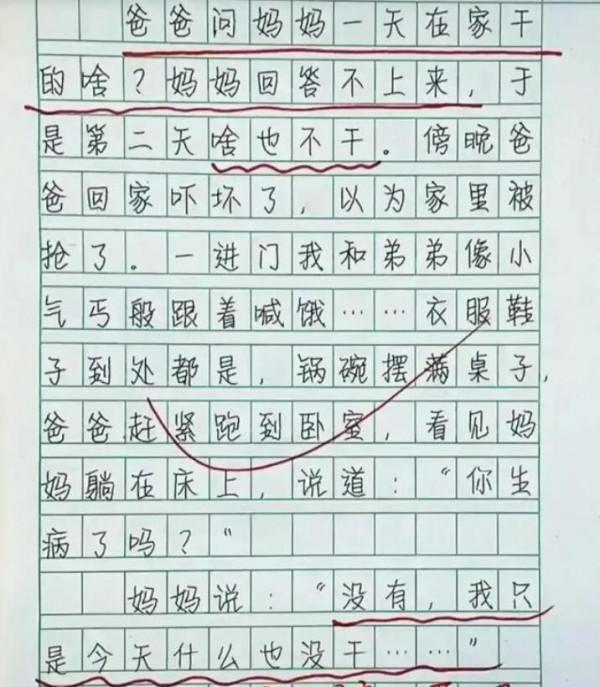 爸爸问妈妈一天在家干
的啥？妈妈回答不上来，于
是第二天啥也不干。傍晚爸
爸回家吓坏了，以为家里被
抢了。一进门我和弟弟像小
气丐般跟着喊饿……衣服鞋
子到处都是，锅碗摆满桌子，
爸爸赶紧跑到卧室，看见妈
妈躺在床上，说道：“你生
病了吗？”
妈妈说：“没有，我只
是今天什么也没干……”